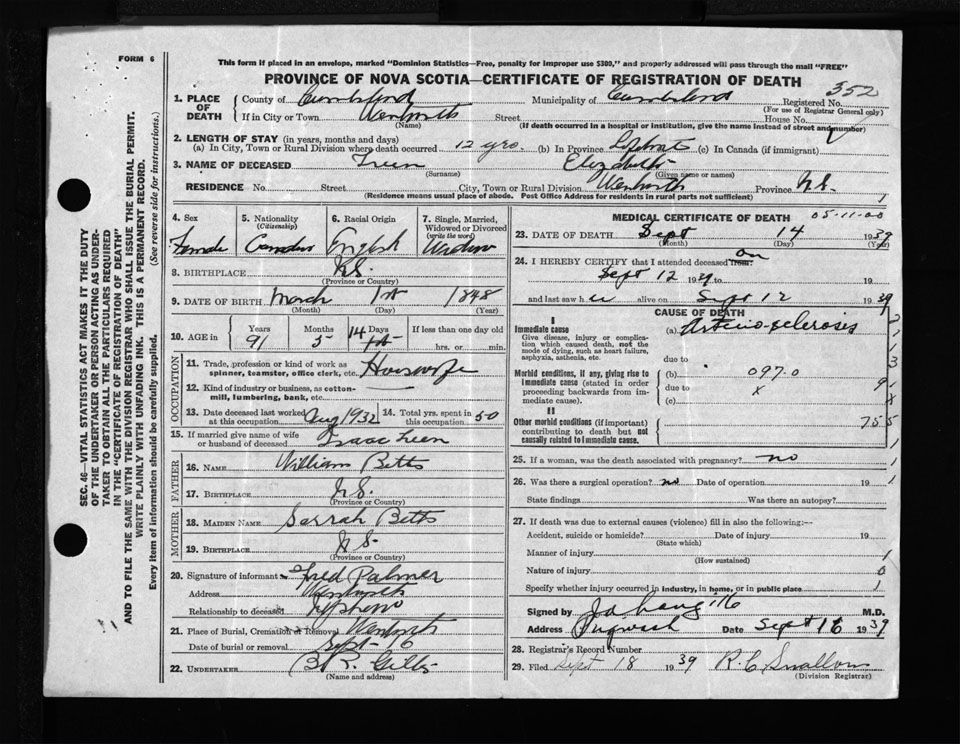 FORM 6
This form if placed in an envelope, marked "Dominion Statistics—Free, penalty for improper use $300," and properly addressed will pass through the mail "FREE"
PROVINCE OF NOVA SCOTIA—CERTIFICATE OF REGISTRATION OF DEATH
352
1. PLACE OF DEATH County of Cumberland Municipality of Cumberland Registered No.
(For use of Registrar General only)
If in City or Town Wentworth Street House No.
(Name) (If death occurred in a hospital or institution, give the name instead of street and number)
2. LENGTH OF STAY (in years, months and days)
(a) In City, Town or Rural Division where death occurred 12 yrs. (b) In Province (c) In Canada (if immigrant)
3. NAME OF DECEASED Treen Elizabeth
(Surname) (Given name or names)
RESIDENCE No. Street City, Town or Rural Division Wentworth Province N.S.
(Residence means usual place of abode. Post Office Address for residents in rural parts not sufficient) 1
4. Sex 5. Nationality (Citizenship) 6. Racial Origin 7. Single, Married, Widowed or Divorced (write the word)
Female Canadian English Widow
8. BIRTHPLACE N.S.
(Province or Country)
9. DATE OF BIRTH March 1st 1848
(Month) (Day) (Year)
10. AGE in Years Months Days If less than one day old
91 5 14 hrs. or min.
OCCUPATION
11. Trade, profession or kind of work as spinner, teamster, office clerk, etc. Housewife
12. Kind of industry or business, as cotton-mill, lumbering, bank, etc.
13. Date deceased last worked at this occupation Aug 1932 14. Total yrs. spent in this occupation 50
15. If married give name of wife or husband of deceased Isaac Treen
FATHER
16. NAME William Betts
17. BIRTHPLACE N.S.
(Province or Country)
MOTHER
18. MAIDEN NAME Sarrah Betts
19. BIRTHPLACE N.S.
(Province or Country)
20. Signature of informant Fred Palmer
Address Wentworth
Relationship to deceased Nephew
21. Place of Burial, Cremation or Removal Wentworth
Date of burial or removal Sept 16
22. UNDERTAKER
(Name and address)
MEDICAL CERTIFICATE OF DEATH 05-11-00
23. DATE OF DEATH Sept 14 1939
(Month) (Day) (Year)
24. I HEREBY CERTIFY that I attended deceased from: on
Sept 12 1939 to 19
and last saw her alive on Sept 12 1939
CAUSE OF DEATH
I
Immediate cause (a) Arterio-sclerosis
Give disease, injury or complication which caused death, not the mode of dying, such as heart failure, asphyxia, asthenia, etc. due to
Morbid conditions, if any, giving rise to immediate cause (stated in order proceeding backwards from immediate cause). (b) 097.0
due to x
(c)
II
Other morbid conditions (if important) contributing to death but not causally related to immediate cause. 755
25. If a woman, was the death associated with pregnancy? no 1
26. Was there a surgical operation? no Date of operation 19 1
State findings Was there an autopsy?
27. If death was due to external causes (violence) fill in also the following:—
Accident, suicide or homicide? Date of injury 19
(State which)
Manner of injury 1
(How sustained)
Nature of injury 0
Specify whether injury occurred in industry, in home, or in public place 1
Signed by M.D.
Address Pugwash Date Sept 16 1939
28. Registrar's Record Number
29. Filed Sept 18 1939 R. C. Swallow
(Division Registrar)
SEC. 46—VITAL STATISTICS ACT MAKES IT THE DUTY
OF THE UNDERTAKER OR PERSON ACTING AS UNDER-
TAKER TO OBTAIN ALL THE PARTICULARS REQUIRED
IN THE "CERTIFICATE OF REGISTRATION OF DEATH"
AND TO FILE THE SAME WITH THE DIVISION REGISTRAR WHO SHALL ISSUE THE BURIAL PERMIT.
WRITE PLAINLY WITH UNFADING INK. THIS IS A PERMANENT RECORD.
Every item of information should be carefully supplied. (See reverse side for instructions.)